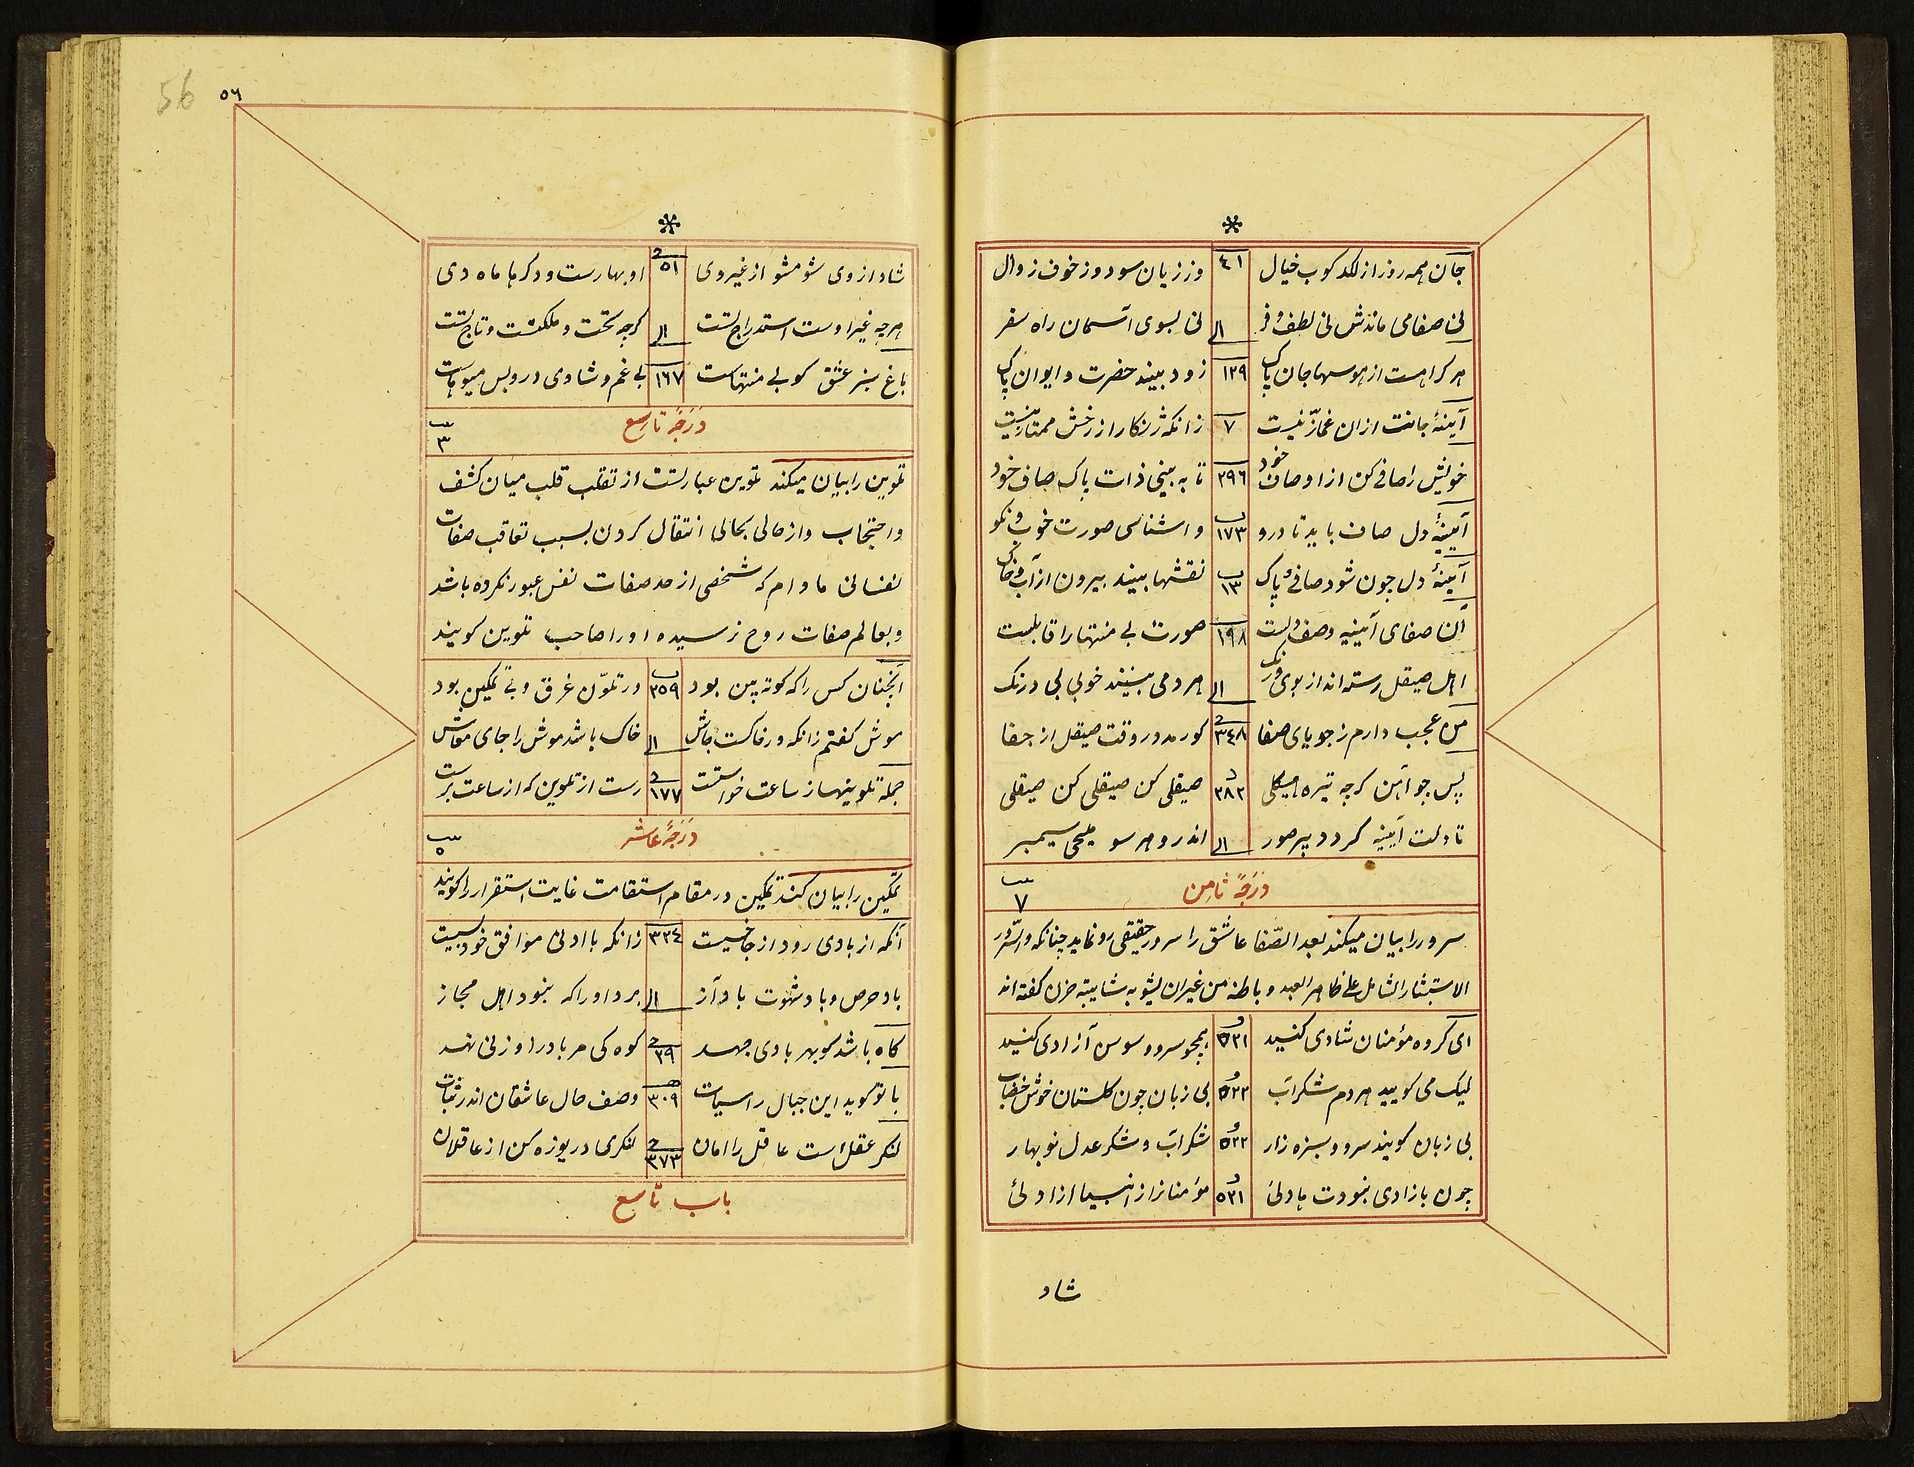 جان همه روز از لکد کوب خیال ٤١ وز زیان سود وز خوف زوال
نی صفا می ماندش نی لطف و فر الی نی بسوی آسمان راه سفر
هر کرا هست از هوسها جان پاک ١٢٩ زود بیند حضرت و ایوان پاک
آینهٔ جانت ازان غمّاز نیست ٧ زانکه ژنکار از رخش ممتاز نیست
خویش را صافی کن از اوصاف خود ٢٩٦ تا به بینی ذات پاک صاف خود
آیینهٔ دل صاف باید تا درو ١٧٣ وا شناسی صورت خوب و نکو
آینهٔ دل چون شود صافی و پاک ١٣ نقشها بیند بیرون از آب و خاک
آن صفای آیینه وصف دلست ١٩٨ صورت بی منتها را قابلست
اهل صیقل رسته اند از بوی و رنک الی هر دمی بینند خوبی بی درنک
من عجب دارم ز جویای صفا ٣٤٨ کو رمد در وقت صیقل از جفا
پس چو آهن کرچه تیره هیکلی ٣٨٢ صیقلی کن صیقلی کن صیقلی
تا دلت آیینه کردد پر صور الی اندرو هر سو ملیحی سیمبر
درجهٔ ثامن ٧
سرور را بیان میکند بعد الصّفا عاشق را سرور حقیقی رو نماید چنانکه والسّرور
الاستبشار الشامل علی ظاهر العبد و باطنه من غیران یشوبه شایبته حزن کفته اند
ای کروه مؤمنان شادی کنید ٥٢١ همچو سرو و سوسن آزادی کنید
لیک می کویید هر دم شکر آب ٥٢٢ بی زبان چون کلستان خوش خضاب
بی زبان کویند سرو و سبزه زار ٥٢٢ شکر آب و شکر عدل نو بهار
چون بازادی نبوت هادیٔ ٥٢١ مؤمنانرا ز انبیا ازادیٔ
شاد
٥٦
56
شاد از وی شو مشو از غیر وی ٥١ او بهارست و دکرها ماه دی
هر چه غیر اوست استدراج تست الی کرچه تخت و ملکتست و تاج تست
باغ سبز عشق کو بی منتهاست ١٦٧ بی غم و شادی درو بس میوهاست
درجهٔ تاسع ٣
تلوین را بیان میکند تلوین عبارتست از تقلب قلب میان کشف
و احتجاب و از حالی بحالی انتقال کردن بسبب تعاقب صفات
نفسانی مادام که شخصی از حد صفات نفس عبور نکرده باشد
و بعالم صفات روح نرسیده او را صاحب تلوین کویند
آنچنان کس را که کوته بین بود ٣٥٩ در تلوّن غرق و بی تمکین بود
موش کفتم زانکه در خاکست جاش الی خاک باشد موش را جای معاش
جمله تلوینها ز ساعت خواستست ١٧٧ رست از تلوین که از ساعت برست
درجهٔ عاشر ٥
تمکین را بیان کند تمکین در مقام استقامت غایت استقرار را کویند
آنکه از بادی رود از جا خسیست ٣٢٤ زانکه باد نا موافق خود بسیست
باد حرص و باد شهوت باد آز الی برد او را که نبود اهل مجاز
کاه باشد کو بهر بادی جهد ٣٩ کوه کی مر باد را وزنی نهد
با تو کوید این جبال راسیات ٣٠٩ وصف حال عاشقان اندر ثبات
لنکر عقل است عاقل را امان ٣٧٣ لنکری در یوزه کن از عاقلان
باب تاسع